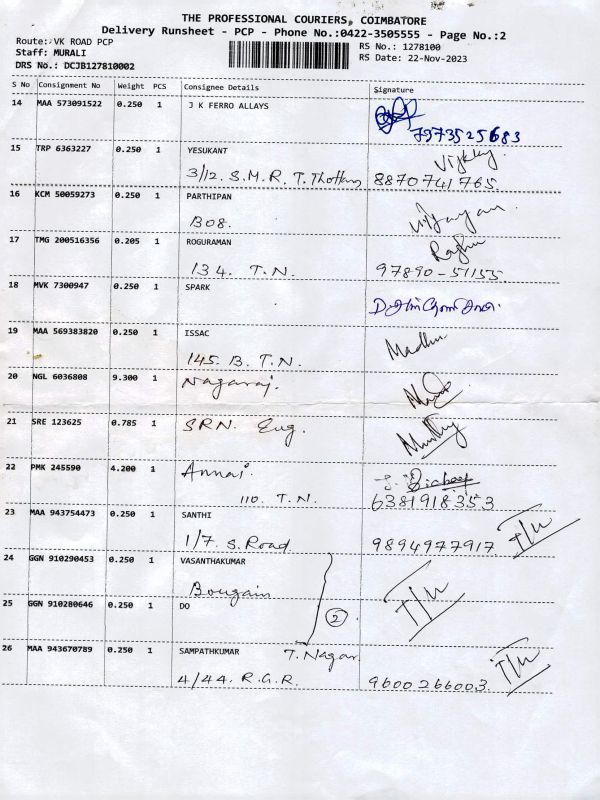 THE PROFESSIONAL COURIERS, COIMBATORE
Delivery Runsheet - PCP - Phone No.:0422-3505555 - Page No.:2
Route: VK ROAD PCP
Staff: MURALI
DRS No.: DCJB127810002
RS No.: 1278100
RS Date: 22-Nov-2023
S No Consignment No Weight PCS Consignee Details Signature
14 MAA 573091522 0.250 1 J K FERRO ALLAYS
7973525683
15 TRP 6363227 0.250 1 YESUKANT
3/12. S.M.R. T. Thottam 8870741765
16 KCM 50059273 0.250 1 PARTHIPAN
B08.
17 TMG 200516356 0.205 1 ROGURAMAN Raghu
134. T.N. 97890-51155
18 MVK 7300947 0.250 1 SPARK
19 MAA 569383820 0.250 1 ISSAC Madhu
145. B. T.N.
20 NGL 6036808 9.300 1 Nagaraj.
21 SRE 123625 0.785 1 SRN. Eng.
22 PMK 245590 4.200 1 Annai.
110. T.N. 6381918353
23 MAA 943754473 0.250 1 SANTHI T/N
1/7 S. Road 9894977917
24 GGN 910290453 0.250 1 VASANTHAKUMAR
Bougain T/N
25 GGN 910280646 0.250 1 DO 2
26 MAA 943670789 0.250 1 SAMPATHKUMAR T. Nagar T/N
4/44. R.G.R. 9600266003